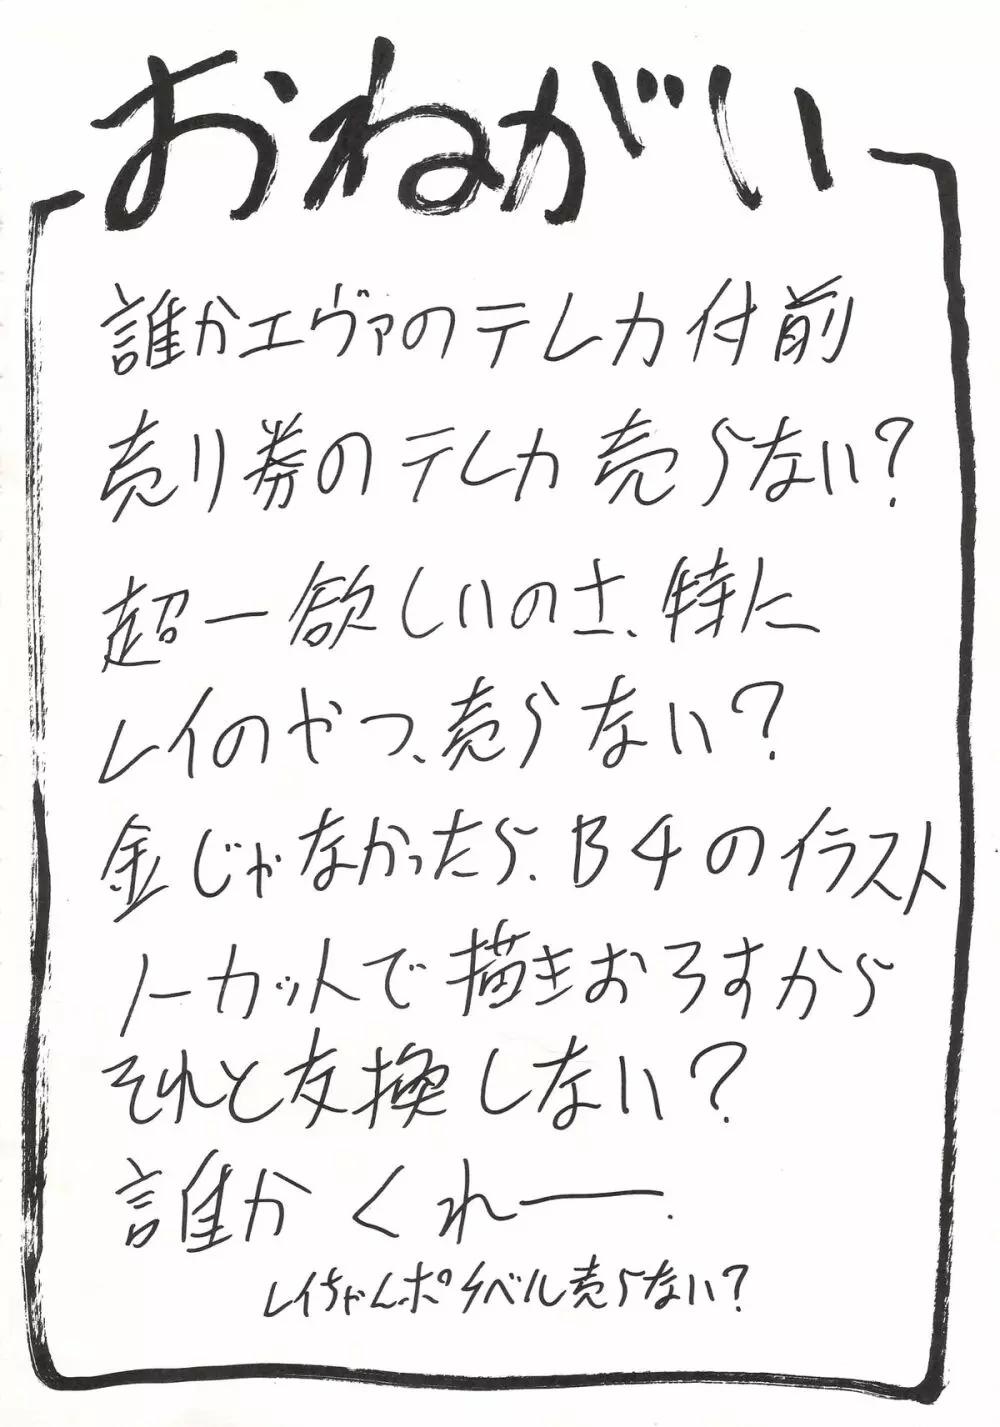 おねがい
誰かエヴァのテレカ付前
売り券のテレカ売らない?
超一欲しいのさ、特に
レイのやつ、売らない?
金じゃなかったら、B4のイラスト
1カットで描きおろすから
それと交換しない?
誰かくれー.
レイちゃんポケベル売らない?